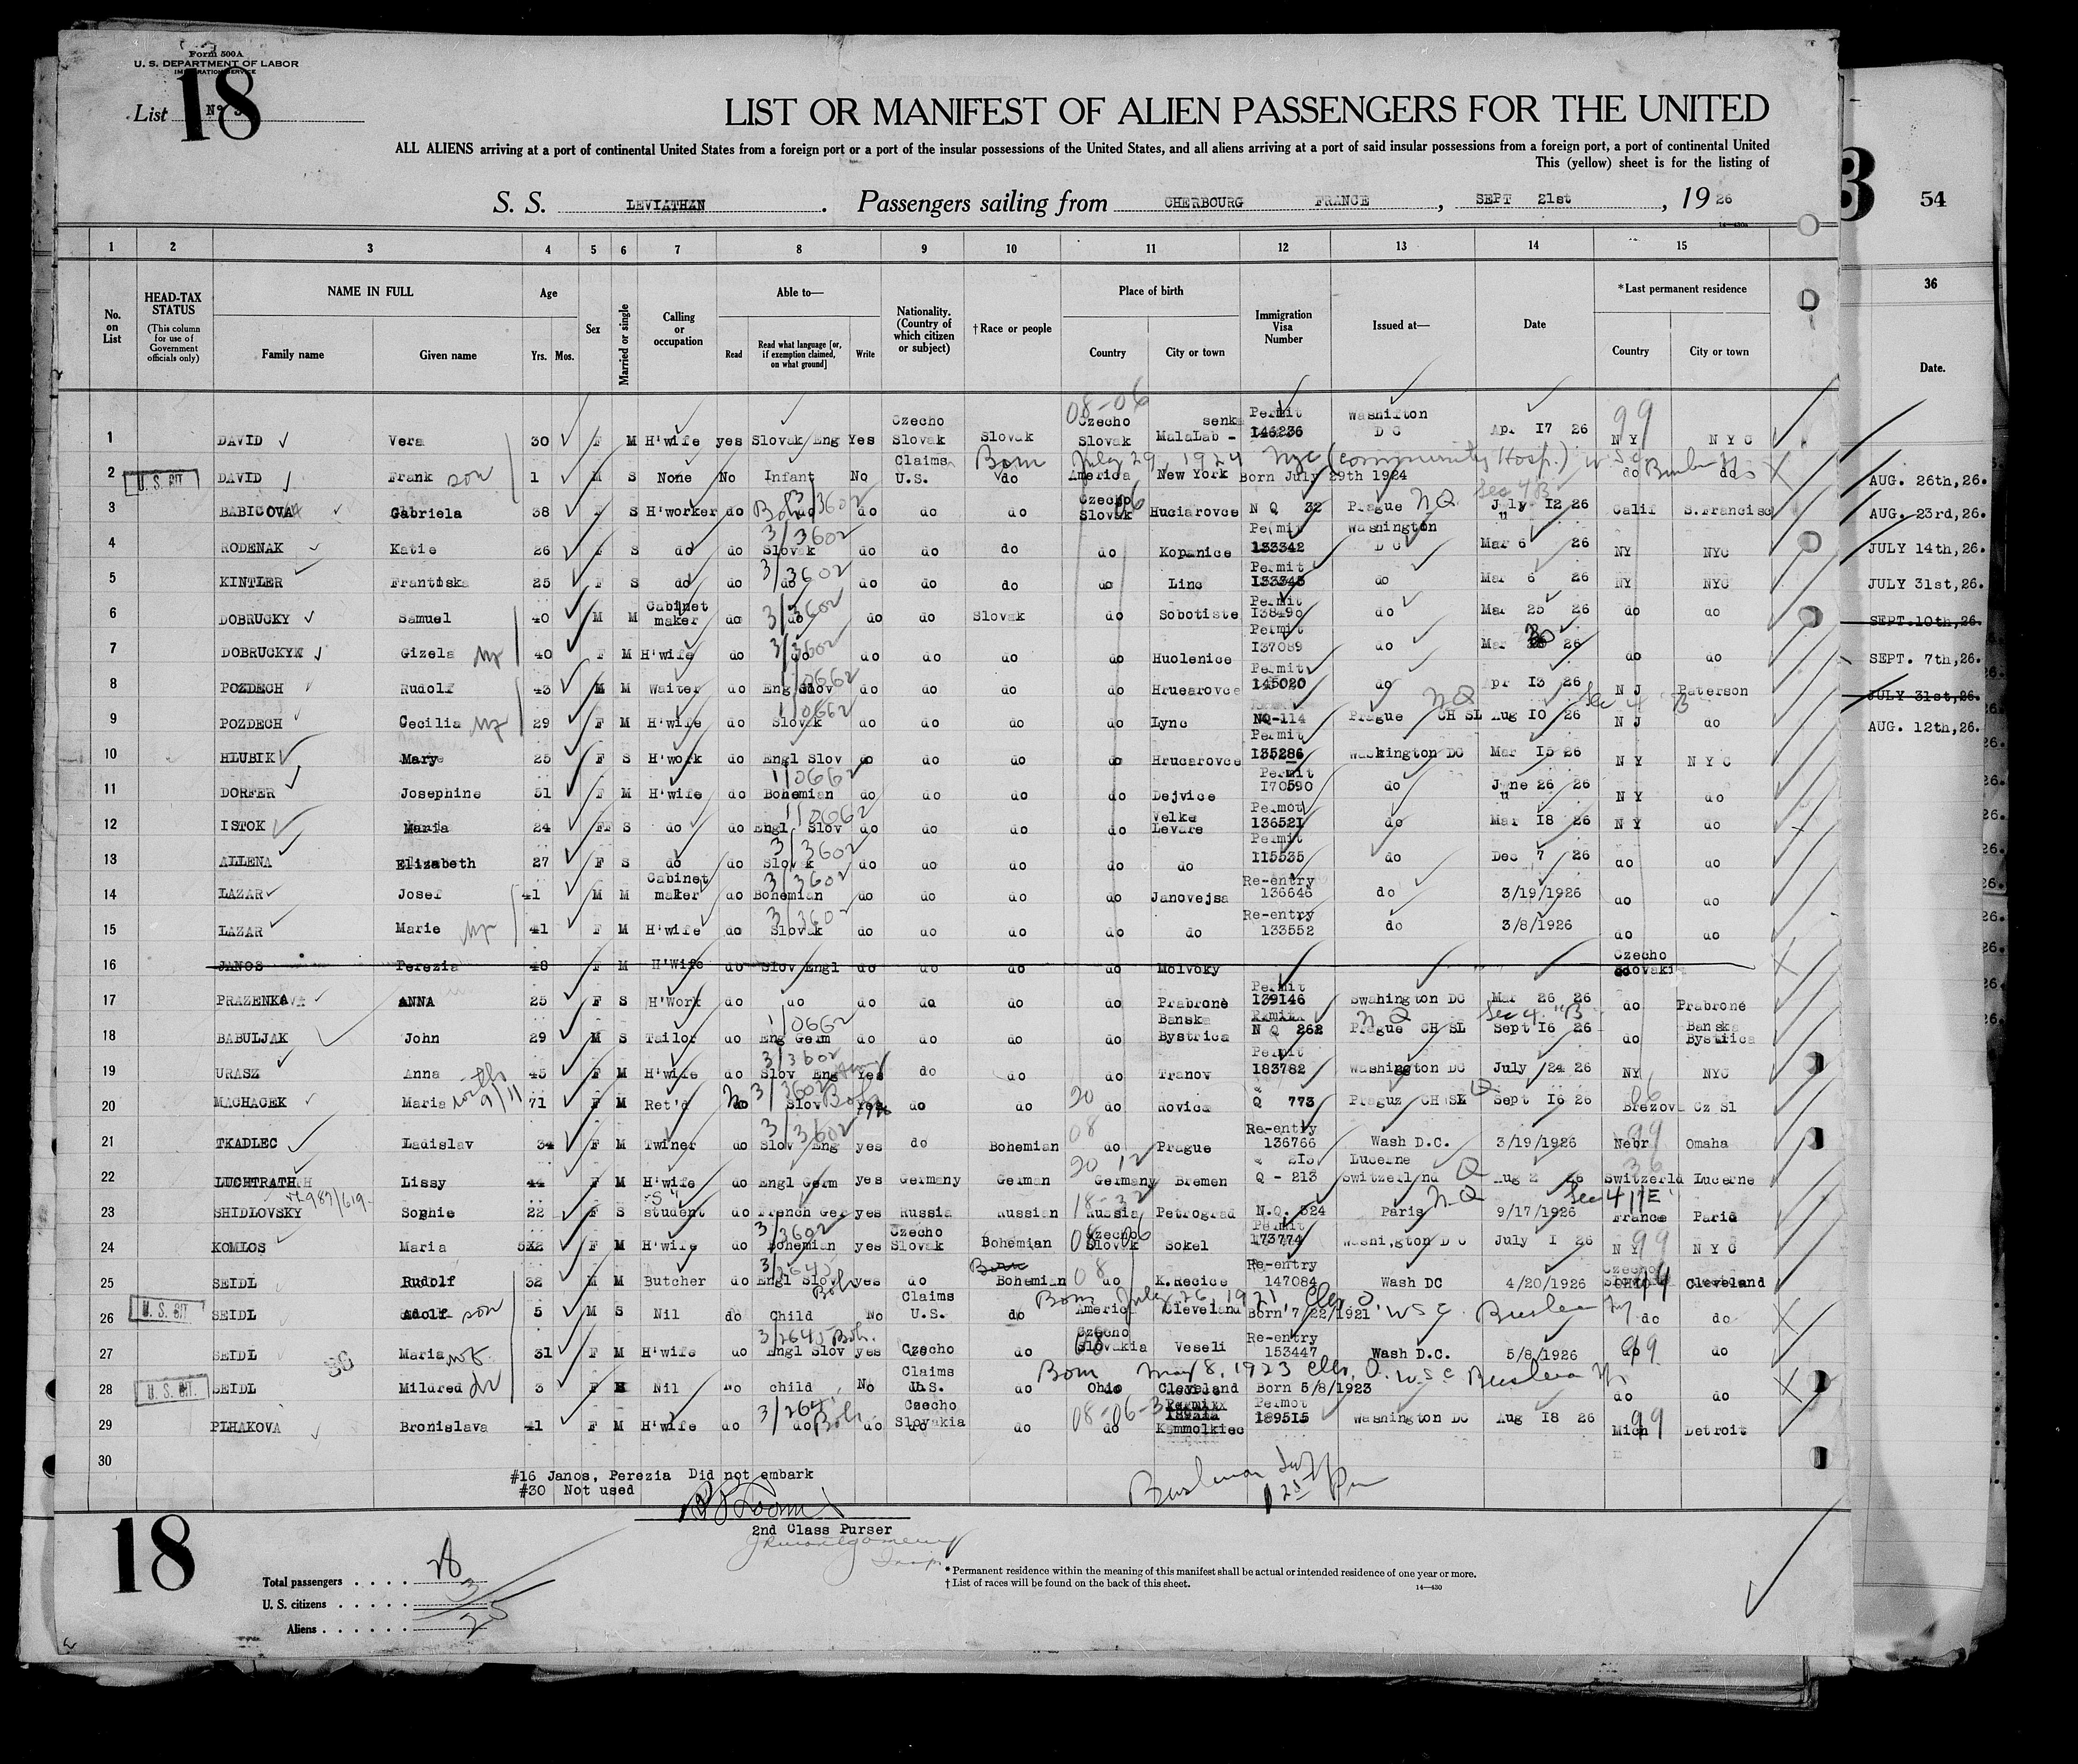 Form 500A
U. S. DEPARTMENT OF LABOR
IMMIGRATION SERVICE
18
List No
LIST OR MANIFEST OF ALIEN PASSENGERS FOR THE UNITED
ALL ALIENS arriving at a port of continental United States from a foreign port or a port of the insular possessions of the United States, and all aliens arriving at a port of said insular possessions from a foreign port, a port of continental United
This (yellow) sheet is for the listing of
S. S. LEVIATHAN . Passengers sailing from CHERBOURG FRANCE , SEPT 21st , 19 26
3 54
1 2 3 4 5 6 7 8 9 10 11 12 13 14 15
36
No. on List
HEAD-TAX STATUS (This column for use of Government officials only)
NAME IN FULL
Family name Given name
Age
Yrs. Mos.
Sex
Married or single
Calling or occupation
Able to—
Read Read what language [or, if exemption claimed, on what ground] Write
Nationality. (Country of which citizen or subject)
†Race or people
Place of birth
Country City or town
Immigration Visa Number
Issued at—
Date
*Last permanent residence
Country City or town
Date.
1 DAVID Vera 30 F M H'wife yes Slovak Eng Yes Czecho Slovak Slovak 08-06 Czecho Slovak MalaLab - senka Permit 146236 Washifton D C Apr 17 26 99 N Y N Y C
2 U. S. CIT DAVID Frank son 1 M S None No Infant No Claims U.S. do America New York Born July 29th 1924 do do
Born July 29, 1924 Nyc (community Hosp.)
3 BABICOVA Gabriela 38 F S H'worker do do do do do Czecho Slovak Huciarovce N Q 32 Prague NQ July 12 26 Sec 4 B Calif S.Francisc
4 RODENAK Katie 26 F S do do Slovak 3/3602 do do do do Kopanice Permit 133342 Washington D C Mar 6 26 NY NYC
5 KINTLER Frantiska 25 F S do do do 3/3602 do do do do Linc Permit 133343 do Mar 6 26 NY NYC
6 DOBRUCKY Samuel 40 M M Cabinet maker do do 3/3602 do do Slovak do Sobotiste Permit 138490 do Mar 25 26 do do
7 DOBRUCKYN Gizela 40 F M H'wife do do 3/3602 do do do do Huolenice Permit 137089 do Mar 30 26 do do
8 POZDECH Rudolf 43 M M Waiter do Eng Slov 1/0662 do do do do Hruearovce Permit 145020 do Apr 13 26 N J Paterson
9 POZDECH Cecilia 29 F M H'wife do Slovak 1/0662 do do do do Lync NQ-114 Prague CH SL NQ Aug 10 26 Sec 4 B N J do
10 HLUBIK Mary 25 F S H'work do Engl Slov do do do do Hrucarovce Permit 135286 Washington DC Mar 15 26 N Y N Y C
11 DORFER Josephine 51 F M H'wife do Bohemian 1/0662 do do do do Dejvice Permit 170590 do June 26 26 N Y do
12 ISTOK Maria 24 F S do do Engl Slov 1/0662 do do do do Velke Levare Permot 136521 do Mar 18 26 N Y do
13 ALLENA Elizabeth 27 F S do do Slovak 3/3602 do do do do do Permit 115535 do Dec 7 26 do do
14 LAZAR Josef 41 M M Cabinet maker do Bohemian 3/3602 do do do do Janovejsa Re-entry 136646 do 3/19/1926 do do
15 LAZAR Marie 41 F M H'wife do Slovak 3/3602 do do do do do Re-entry 133552 do 3/8/1926 do do
16 JANOS Perezia 48 F M H'Wife do Slov Engl do do do do Molvoky Czecho Slovaki
17 PRAZENKA ANNA 25 F S H'Work do do do do do do Prabrone Permit 139146 Swahington DC Mar 26 26 do Prabrone
18 BABULJAK John 29 M S Tailor do Eng Germ 1/0662 do do do do Banska Bystrica N Q 262 Prague CH SL NQ Sept 16 26 Sec 4 "B do Banska Bystrica
19 URASZ Anna 45 F M H'wife do Slov Eng 3/3602 Yes do do do Tranov Permit 183782 Washington DC July 24 26 NY NYC
20 MACHACEK Maria 71 F M Ret'd No Slov 3/3602 Boh do do do Kovica Q 773 Praguz CH SL Q Sept 16 26 Brezova Cz Sl
21 TKADLEC Ladislav 34 F M Twiner do Slov Eng 3/3602 yes do Bohemian do Prague Re-entry 136766 Wash D.C. 3/19/1926 Nebr 99 Omaha
22 LUCHTRATH Lissy 44 F M H'wife do Engl Germ yes Germany German Germany Bremen Q - 213 Lucerne Switzerlnd Q Aug 2 26 Switzerld Lucerne
23 SHIDLOVSKY Sophie 22 F S student do French Ger yes Russia Russian Russia Petrograd N.Q. 324 Paris NQ 9/17/1926 Sec 4 "E" France Paris
24 KOMLOS Maria F M H'wife do Bohemian 3/3602 yes Czecho Slovak Bohemian Czecho Slovak Sokel Permit 173774 Washington D C July 1 26 N Y 99 N Y C
25 SEIDL Rudolf 32 M M Butcher do Engl Slov Boh yes do Bohemian 08 do K.Recice Re-entry 147084 Wash DC 4/20/1926 Cleveland
26 U. S. CIT SEIDL Adolf son 5 M S Nil do Child No Claims U.S. do Americ Cleveland Born 7/22/1921 do do
Born July 26, 1921
27 SEIDL Maria wf 31 F M H'wife do Engl Slov Boh. yes Czecho do Czecho Slovakia Veseli Re-entry 153447 Wash D.C. 5/8/1926 do 99 do
28 U. S. CIT. SEIDL Mildred 3 F Nil No child No Claims U.S. do Ohio Cleveland Born 5/8/1923 do do
Born May 8, 1923 Clev, O.
29 PLHAKOVA Bronislava 41 F M H'wife do do Boh. do Czecho Slovakia do do Kammolkiec Permot 189515 Washington DC Aug 18 26 Mich 99 Detroit
30
#16 Janos, Perezia Did not embark
#30 Not used
2nd Class Purser
18
Total passengers . . . . 28
U. S. citizens . . . . . 3
Aliens . . . . . . 25
* Permanent residence within the meaning of this manifest shall be actual or intended residence of one year or more.
† List of races will be found on the back of this sheet.
14—430
AUG. 26th,26.
AUG. 23rd,26.
JULY 14th,26.
JULY 31st,26.
SEPT.10th,26.
SEPT. 7th,26.
JULY 31st,26.
AUG. 12th,26.